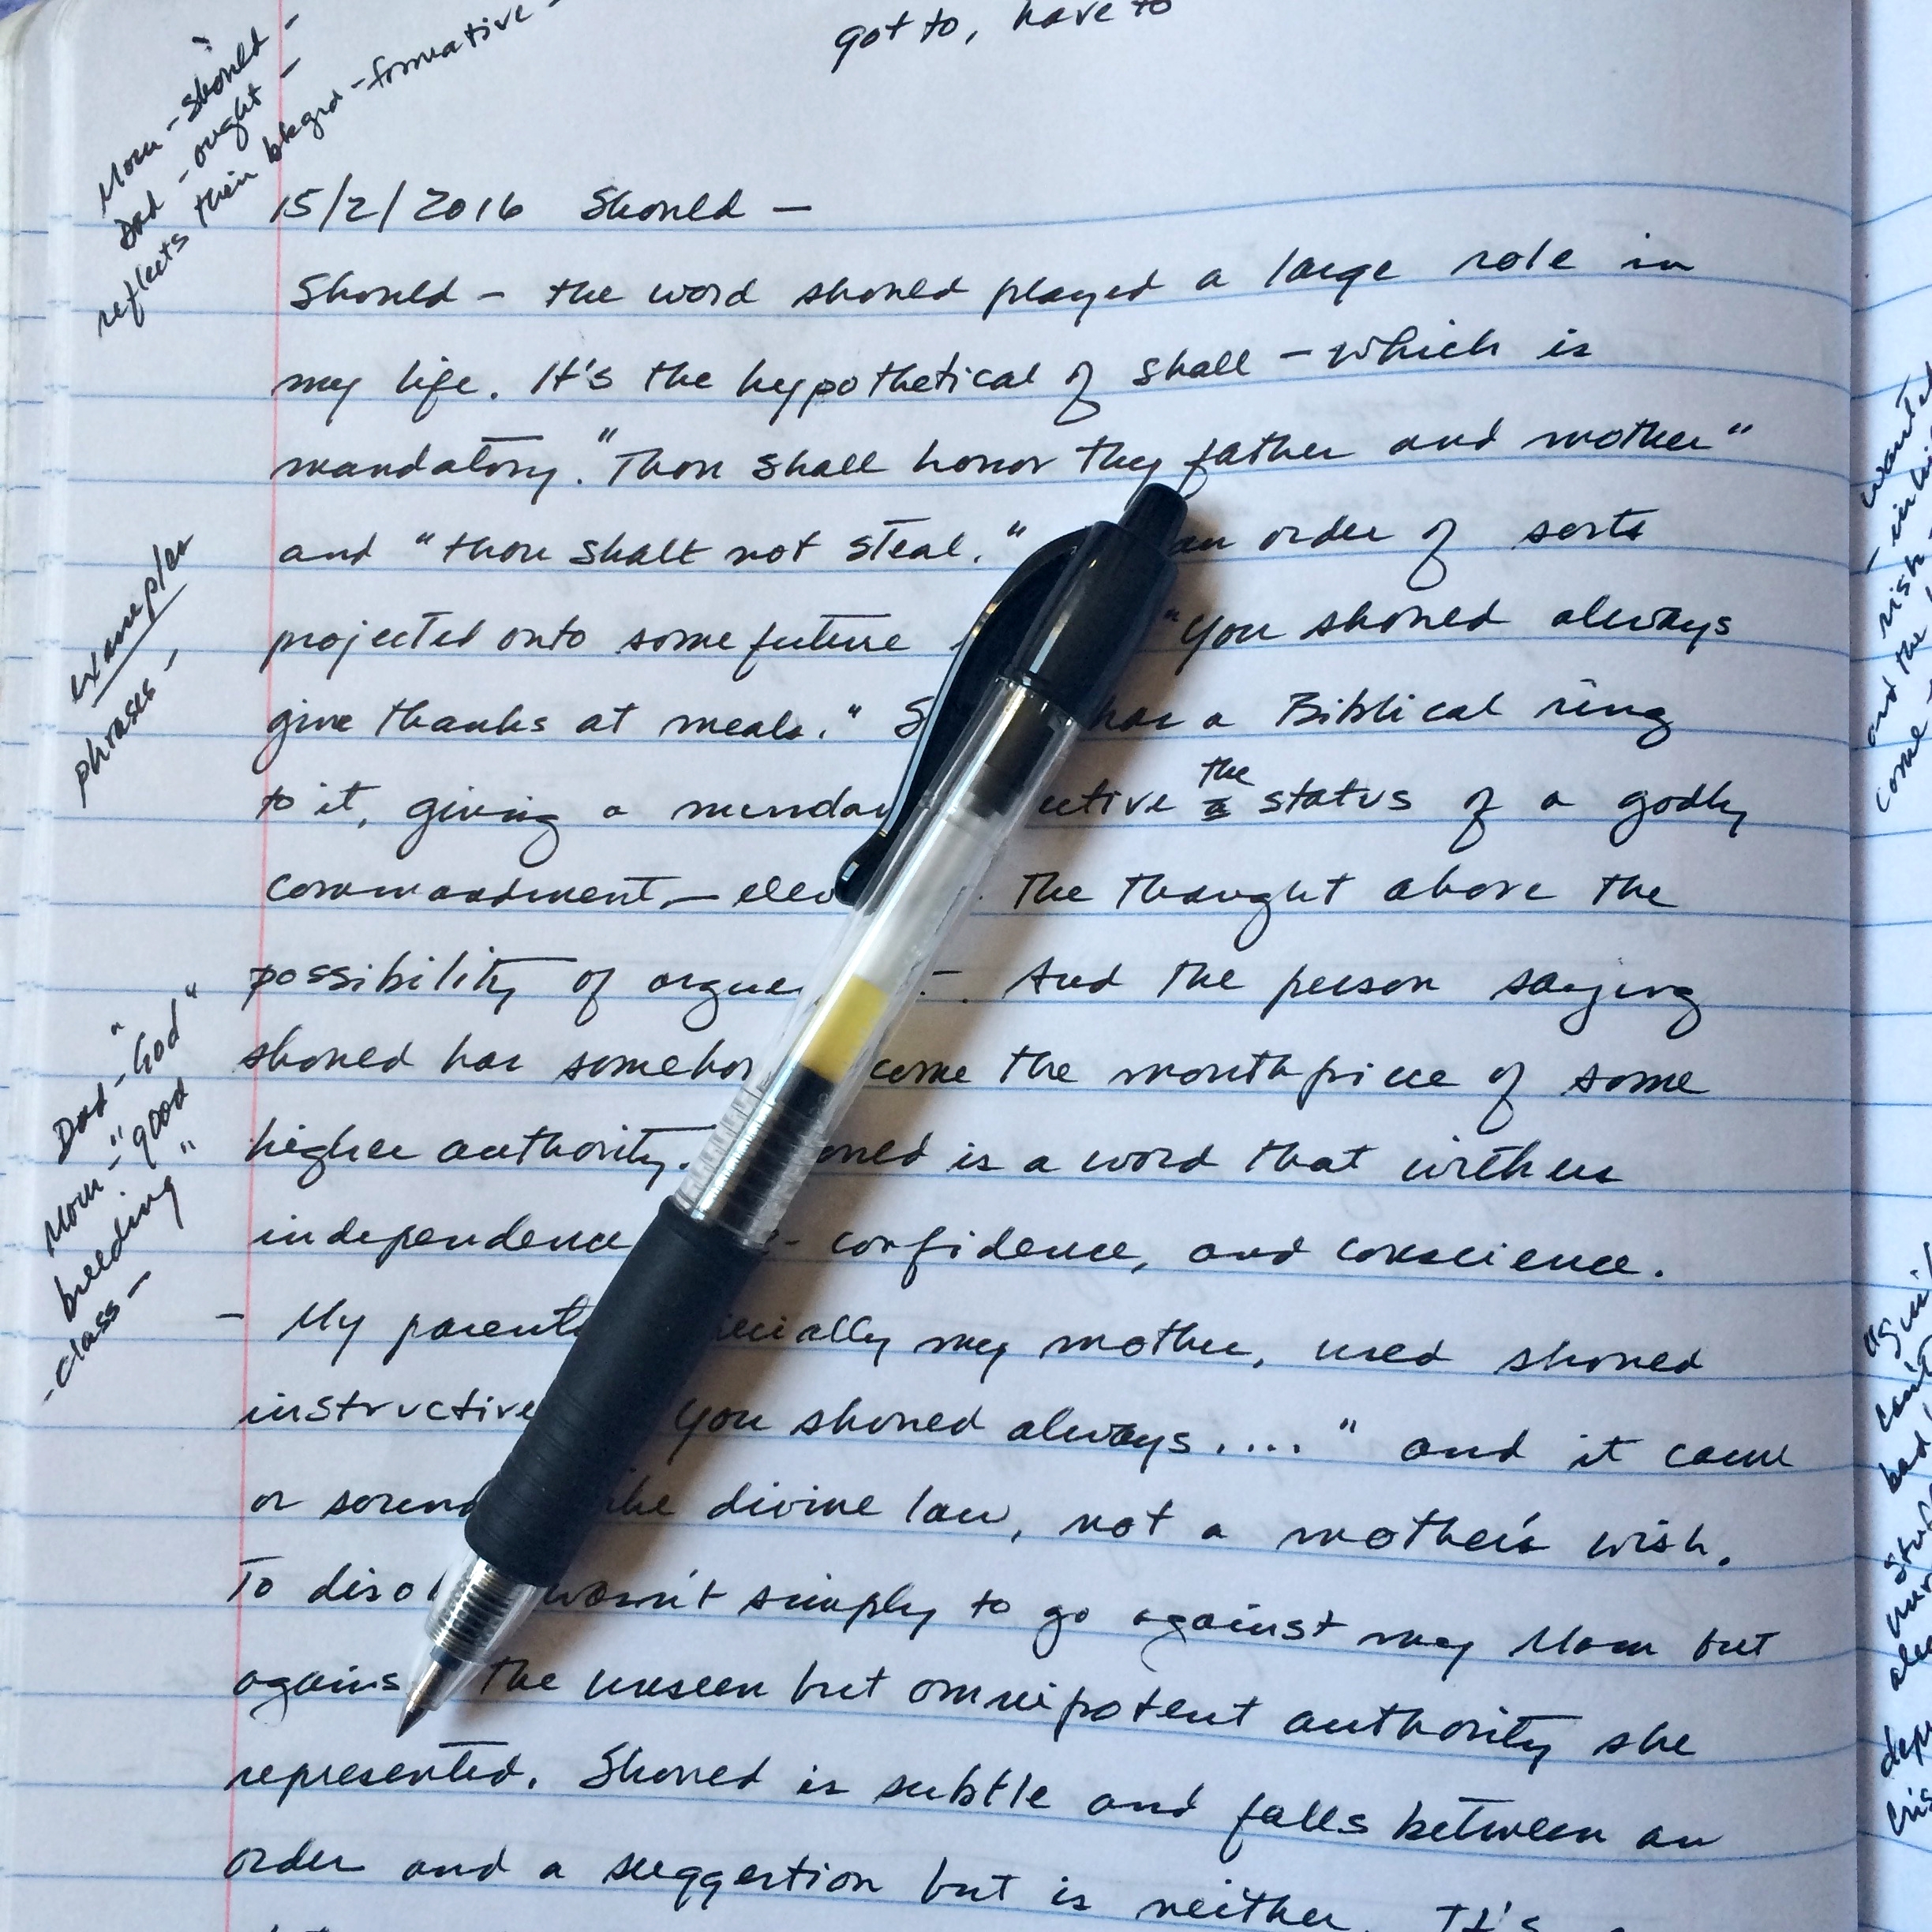 got to, have to
Mom - should -
Dad - ought -
reflects their bkgrd - formative -
15/2/2016 Should -
Should - the word should played a large role in
my life. It's the hypothetical of shall - which is
mandatory. "Thou shall honor thy father and mother"
and "thou shalt not steal." an order of sorts
projected onto some future "You should always
give thanks at meals." has a Biblical ring
to it, giving a the status of a godly
commandment, - the thought above the
possibility of And the person saying
should has the mouthpiece of some
higher authority. is a word that withers
independence confidence, and conscience.
- My my mother, used should
You should always...." and it came
or divine law, not a mother's wish.
To wasn't simply to go against my Mom but
the unseen but omnipotent authority she
represented. Should is subtle and falls between an
order and a suggestion but is neither. It's
examples
phrases -
Dad - "God"
Mom - "good
breeding"
- class -
wanted
and the